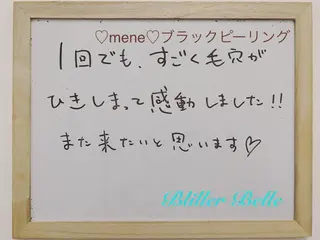 ♡mene♡ブラックピーリング
1回でも、すごく毛穴が
ひきしまって感動しました!!
また来たいと思います♡
Bliller Belle